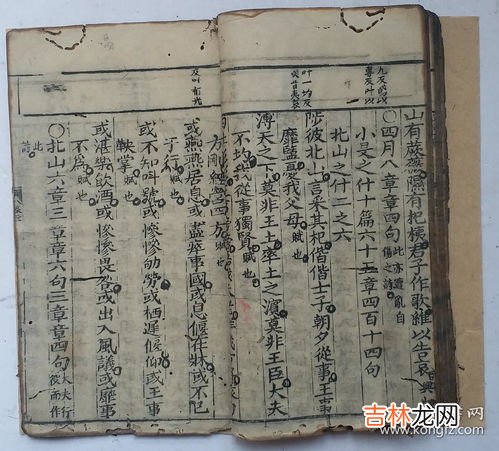 山有蕨薇隰有杞桋君子作歌維以告哀
〇四月八章章四句此亦遭亂自傷之詩
小旻之什十篇六十五章四百十四句
北山之什二之六
陟彼北山言采其杞偕偕士子朝夕從事王事
靡盬憂我父母賦也
溥天之下莫非王土率土之濱莫非王臣大夫
不均我從事獨賢賦也
方剛經營四方賦也
或燕燕居息或盡瘁事國或息偃在牀或不已
于行賦也
或不知叫號或慘慘劬勞或棲遲偃仰或王事
鞅掌賦也
或湛樂飲酒或慘慘畏咎或出入風議或靡事
不為賦也
〇北山六章三章章六句三章章四句大夫行役而作
此詩
吉林龙网